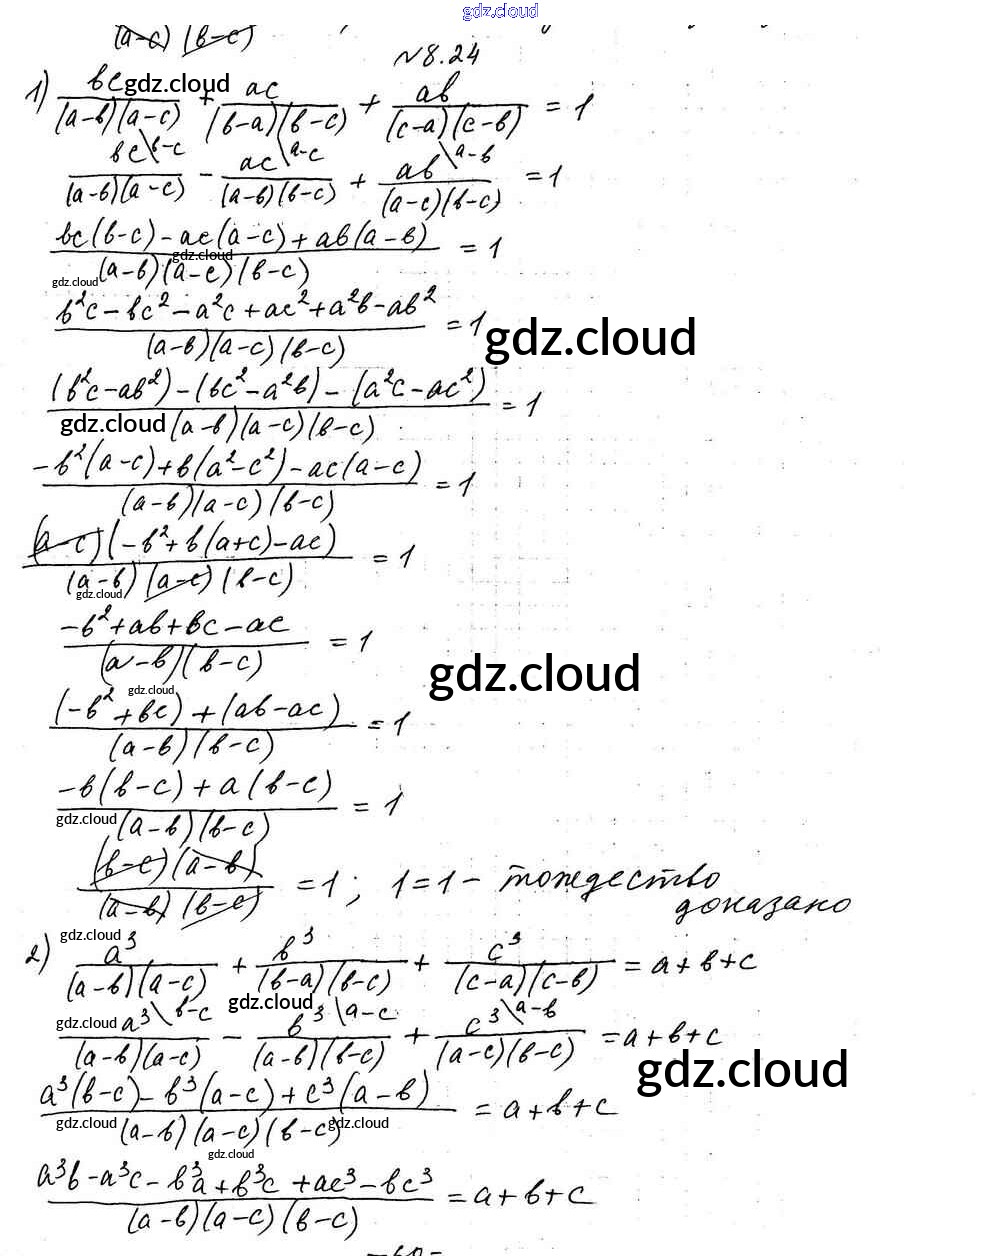 gdz.cloud
(a-c) (b-c)
№8.24
1) bc/((a-b)(a-c)) + ac/((b-a)(b-c)) + ab/((c-a)(c-b)) = 1
gdz.cloud
bc\b-c/((a-b)(a-c)) - ac\a-c/((a-b)(b-c)) + ab\a-b/((a-c)(b-c)) = 1
(bc(b-c)-ac(a-c)+ab(a-b))/((a-b)(a-c)(b-c)) = 1
gdz.cloud
gdz.cloud
(b²c-bc²-a²c+ac²+a²b-ab²)/((a-b)(a-c)(b-c)) = 1
gdz.cloud
((b²c-ab²)-(bc²-a²b)-(a²c-ac²))/((a-b)(a-c)(b-c)) = 1
gdz.cloud
(-b²(a-c)+b(a²-c²)-ac(a-c))/((a-b)(a-c)(b-c)) = 1
((a-c)(-b²+b(a+c)-ac))/((a-b)(a-c)(b-c)) = 1
gdz.cloud
(-b²+ab+bc-ac)/((a-b)(b-c)) = 1
gdz.cloud
gdz.cloud
((-b²+bc)+(ab-ac))/((a-b)(b-c)) = 1
(-b(b-c)+a(b-c))/((a-b)(b-c)) = 1
gdz.cloud
((b-c)(a-b))/((a-b)(b-c)) = 1; 1=1 - тождество
доказано
gdz.cloud
2) a³/((a-b)(a-c)) + b³/((b-a)(b-c)) + c³/((c-a)(c-b)) = a+b+c
gdz.cloud
gdz.cloud
a³\b-c/((a-b)(a-c)) - b³\a-c/((a-b)(b-c)) + c³\a-b/((a-c)(b-c)) = a+b+c
gdz.cloud
(a³(b-c)-b³(a-c)+c³(a-b))/((a-b)(a-c)(b-c)) = a+b+c
gdz.cloud
gdz.cloud
gdz.cloud
(a³b-a³c-b³a+b³c+ac³-bc³)/((a-b)(a-c)(b-c)) = a+b+c